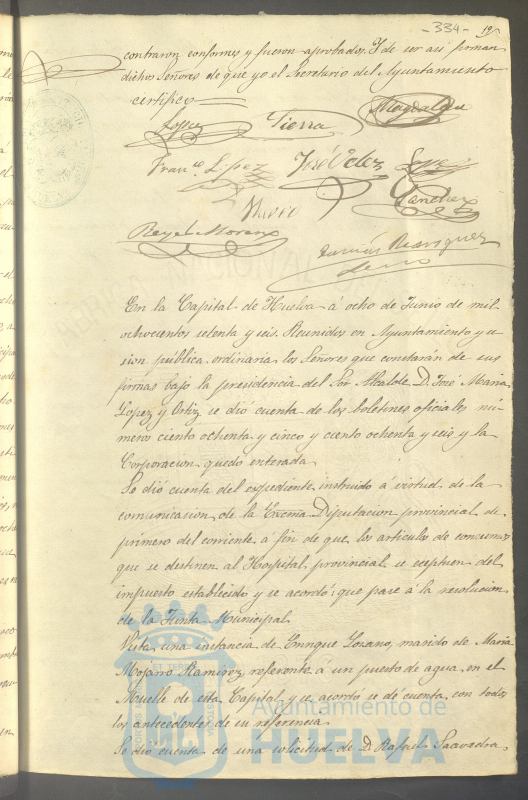 -334-
contraron conformes y fueron aprobados. Y de ser asi firman
dichos Señores de que yo el Secretario del Ayuntamiento
certifico
Lopez Tierra
Fran.co Lopez José
Sanchez
Reyes Moreno
En la Capital de Huelva á ocho de Junio de mil
ochocientos setenta y seis. Reunidos en Ayuntamiento y se
sion publica ordinaria los Señores que constarán de sus
firmas bajo la presidencia del Sor Alcalde D. José Maria
Lopez y Ortiz se dió cuenta de los boletines oficiales nú
meros ciento ochenta y cinco y ciento ochenta y seis y la
Corporacion quedó enterada
Se dió cuenta del expediente instruido á virtud de la
comunicacion de la Excma Diputacion provincial de
primero del corriente á fin de que los articulos de consumos
que se destinen al Hospital provincial se esceptuen del
impuesto establecido y se acordó: que pase á la resolucion
de la Junta Municipal
Vista una instancia de Enrique Lozano, marido de Maria
Mojarro Ramirez, referente á un puesto de agua en el
Muelle de esta Capital y se acordó se dé cuenta con todos
los antecedentes de su referencia
Se dió cuenta de una solicitud de D. Rafael Saavedra
Ayuntamiento de
HUELVA